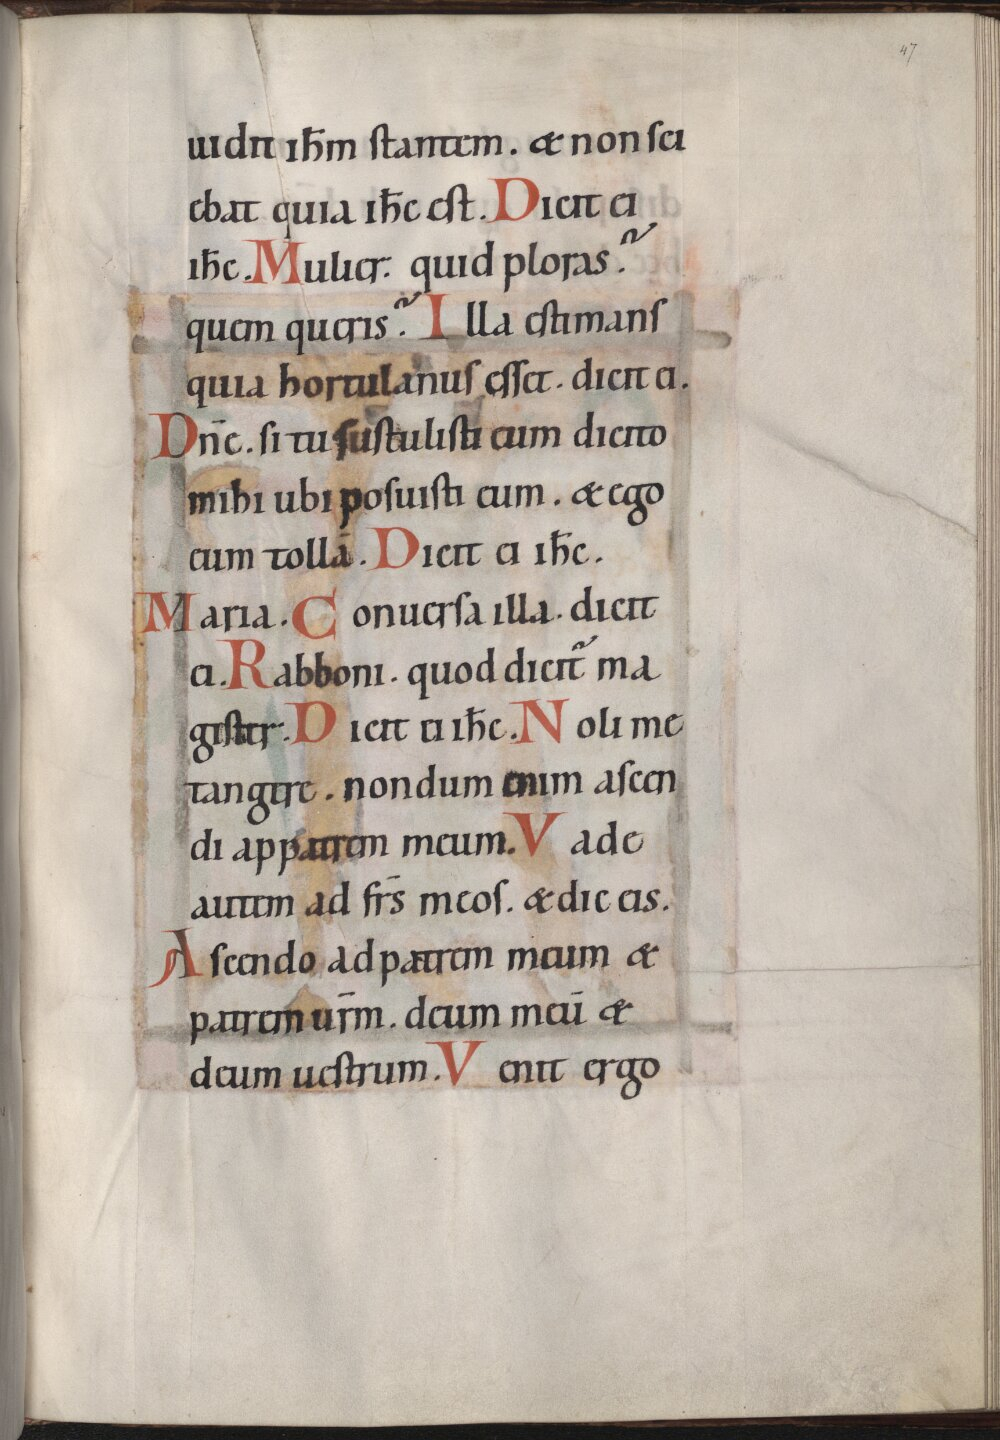 47
uidit ih̄m stantem. & non sci
ebat quia ih̄c est. Dicit ei
ih̄c. Mulier. quid ploras?
quem queris? Illa estimans
quia hortulanus esset. dicit ei.
Dn̄e. si tu sustulisti eum dicito
mihi ubi posuisti eum. & ego
eum tollā. Dicit ei ih̄c.
Maria. Conuersa illa. dicit
ei. Rabboni. quod dicit᷑ ma
gister. Dicit ei ih̄c. Noli me
tangere. nondum enim ascen
di ap patrem meum. Vade
autem ad fr̄s meos. & dic eis.
Ascendo ad patrem meum &
patrem ur̄m. deum meū &
deum uestrum. Venit ergo